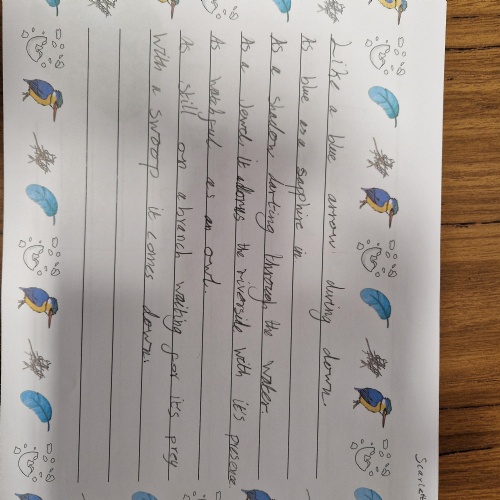 Scarlett
Like a blue arrow diving down
As blue as a sapphire in
As a shadow darting through the water.
As a Jewel it adorns the riverside with it's presence.
As watchful as an owl.
As skill on a branch waiting for it's prey
With a swoop it comes down.